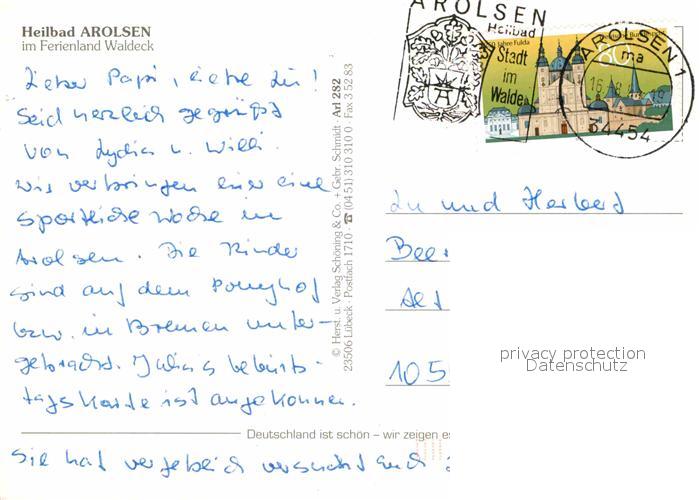 Heilbad AROLSEN
im Ferienland Waldeck
AROLSEN
Heilbad
Stadt
im
Walde
AROLSEN 1
ma
34454
80
Lieber Papi, liebe Lu!
Seid herzlich gegrüßt
von Lydia u. Willi.
Wir verbringen hier eine
sportliche Woche in
Arolsen. Die Kinder
sind auf dem Ponyhof
bzw. in Bremen unter-
gebracht. Julias Geburts-
tagskarte ist angekommen.
Sie hat vergeblich versucht Euch
© Herst. u. Verlag Schöning & Co. + Gebr. Schmidt · Arl 282
23506 Lübeck · Postfach 1710 · ☎ (04 51) 310 310 · Fax 3 52 83
Lu und Herbert
Bee
Alt
105
privacy protection
Datenschutz
Deutschland ist schön – wir zeigen es